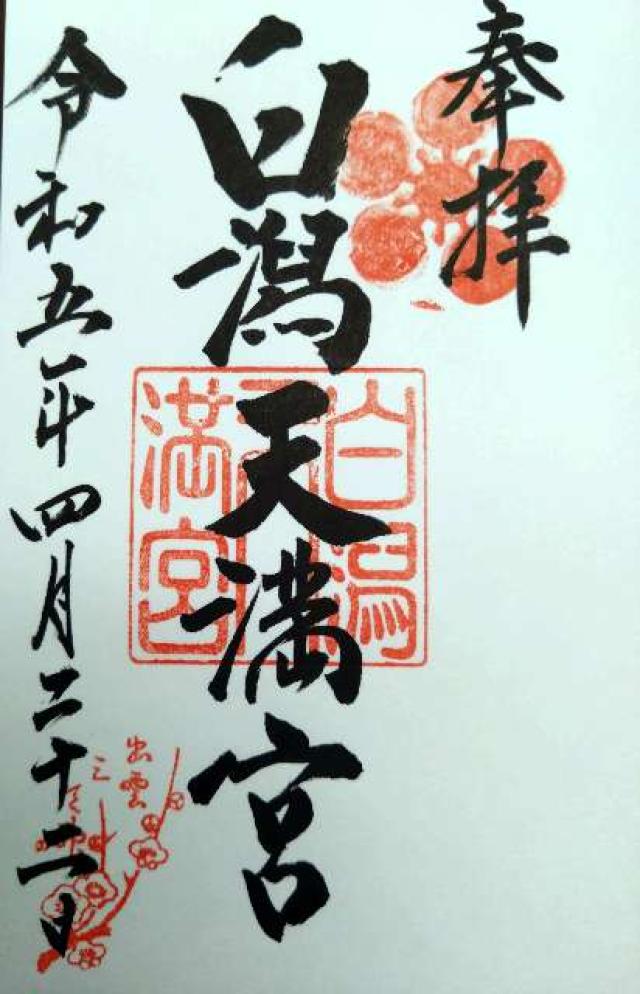 奉拝
白潟天満宮
白潟天満宮
令和五年四月二十二日
出雲
三